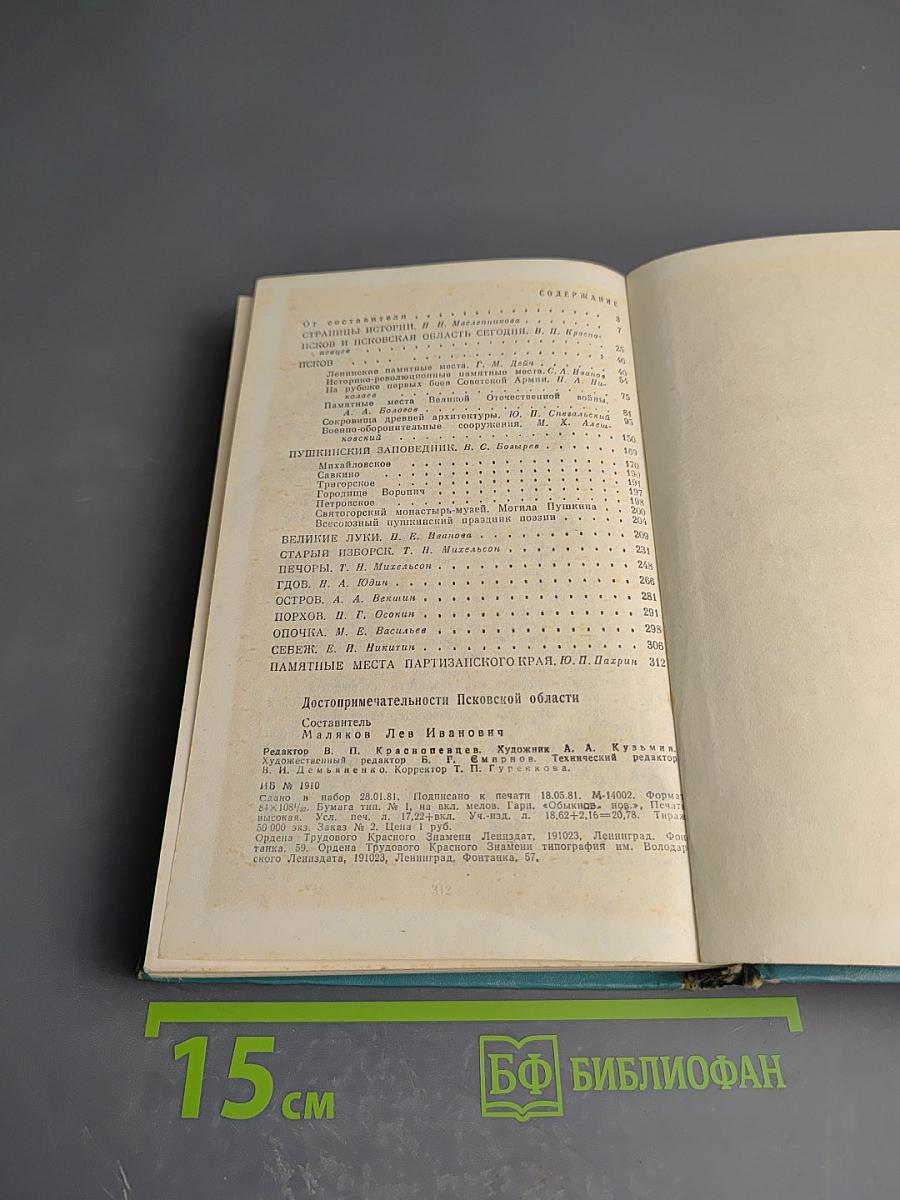 СОДЕРЖАНИЕ
От составителя . . . . . . . . . . . . 3
СТРАНИЦЫ ИСТОРИИ. Н. Н. Масленникова . . . . . . 7
ПСКОВ И ПСКОВСКАЯ ОБЛАСТЬ СЕГОДНЯ. В. П. Красно-
певцев . . . . . . . . . . . . 25
ПСКОВ . . . . . . . . . . . . 40
Ленинские памятные места. Г. М. Дейч . . . . . . 40
Историко-революционные памятные места. С. А. Иванов 54
На рубеже первых боев Советской Армии. П. А. Ни-
колаев . . . . . . . . . . . . 75
Памятные места Великой Отечественной войны.
А. А. Бологов . . . . . . . . . . . . 81
Сокровища древней архитектуры. Ю. П. Спегальский 95
Военно-оборонительные сооружения. М. Х. Алеш-
ковский . . . . . . . . . . . . 150
ПУШКИНСКИЙ ЗАПОВЕДНИК. В. С. Бозырев . . . . . . 169
Михайловское . . . . . . . . . . . . 170
Савкино . . . . . . . . . . . . 190
Тригорское . . . . . . . . . . . . 191
Городище Воронич . . . . . . . . . . . . 197
Петровское . . . . . . . . . . . . 198
Святогорский монастырь-музей. Могила Пушкина . . 200
Всесоюзный пушкинский праздник поэзии . . . . . 204
ВЕЛИКИЕ ЛУКИ. П. Е. Иванова . . . . . . . . . . 209
СТАРЫЙ ИЗБОРСК. Т. Н. Михельсон . . . . . . . . 231
ПЕЧОРЫ. Т. Н. Михельсон . . . . . . . . . . . . 248
ГДОВ. Н. А. Юдин . . . . . . . . . . . . 266
ОСТРОВ. А. А. Векшин . . . . . . . . . . . . 281
ПОРХОВ. Н. Г. Осокин . . . . . . . . . . . . 291
ОПОЧКА. М. Е. Васильев . . . . . . . . . . . . 298
СЕБЕЖ. Е. И. Никитин . . . . . . . . . . . . 306
ПАМЯТНЫЕ МЕСТА ПАРТИЗАНСКОГО КРАЯ. Ю. П. Пахрин 312
Достопримечательности Псковской области
Составитель
Маляков Лев Иванович
Редактор В. П. Краснопевцев. Художник А. А. Кузьмин.
Художественный редактор Б. Г. Смирнов. Технический редактор
В. И. Демьяненко. Корректор Т. П. Гуренкова.
ИБ № 1910
Сдано в набор 28.01.81. Подписано к печати 18.05.81. М-14002. Формат
84×108¹/₃₂. Бумага тип. № 1, на вкл. мелов. Гарн. «Обыкнов. нов.», Печать
высокая. Усл. печ. л. 17,22+вкл. Уч.-изд. л. 18,62+2,16=20,78. Тираж
50 000 экз. Заказ № 2. Цена 1 руб.
Ордена Трудового Красного Знамени Лениздат, 191023, Ленинград, Фон
танка, 59. Ордена Трудового Красного Знамени типография им. Володар
ского Лениздата, 191023, Ленинград, Фонтанка, 57.
312
15 см
БФ БИБЛИОФАН